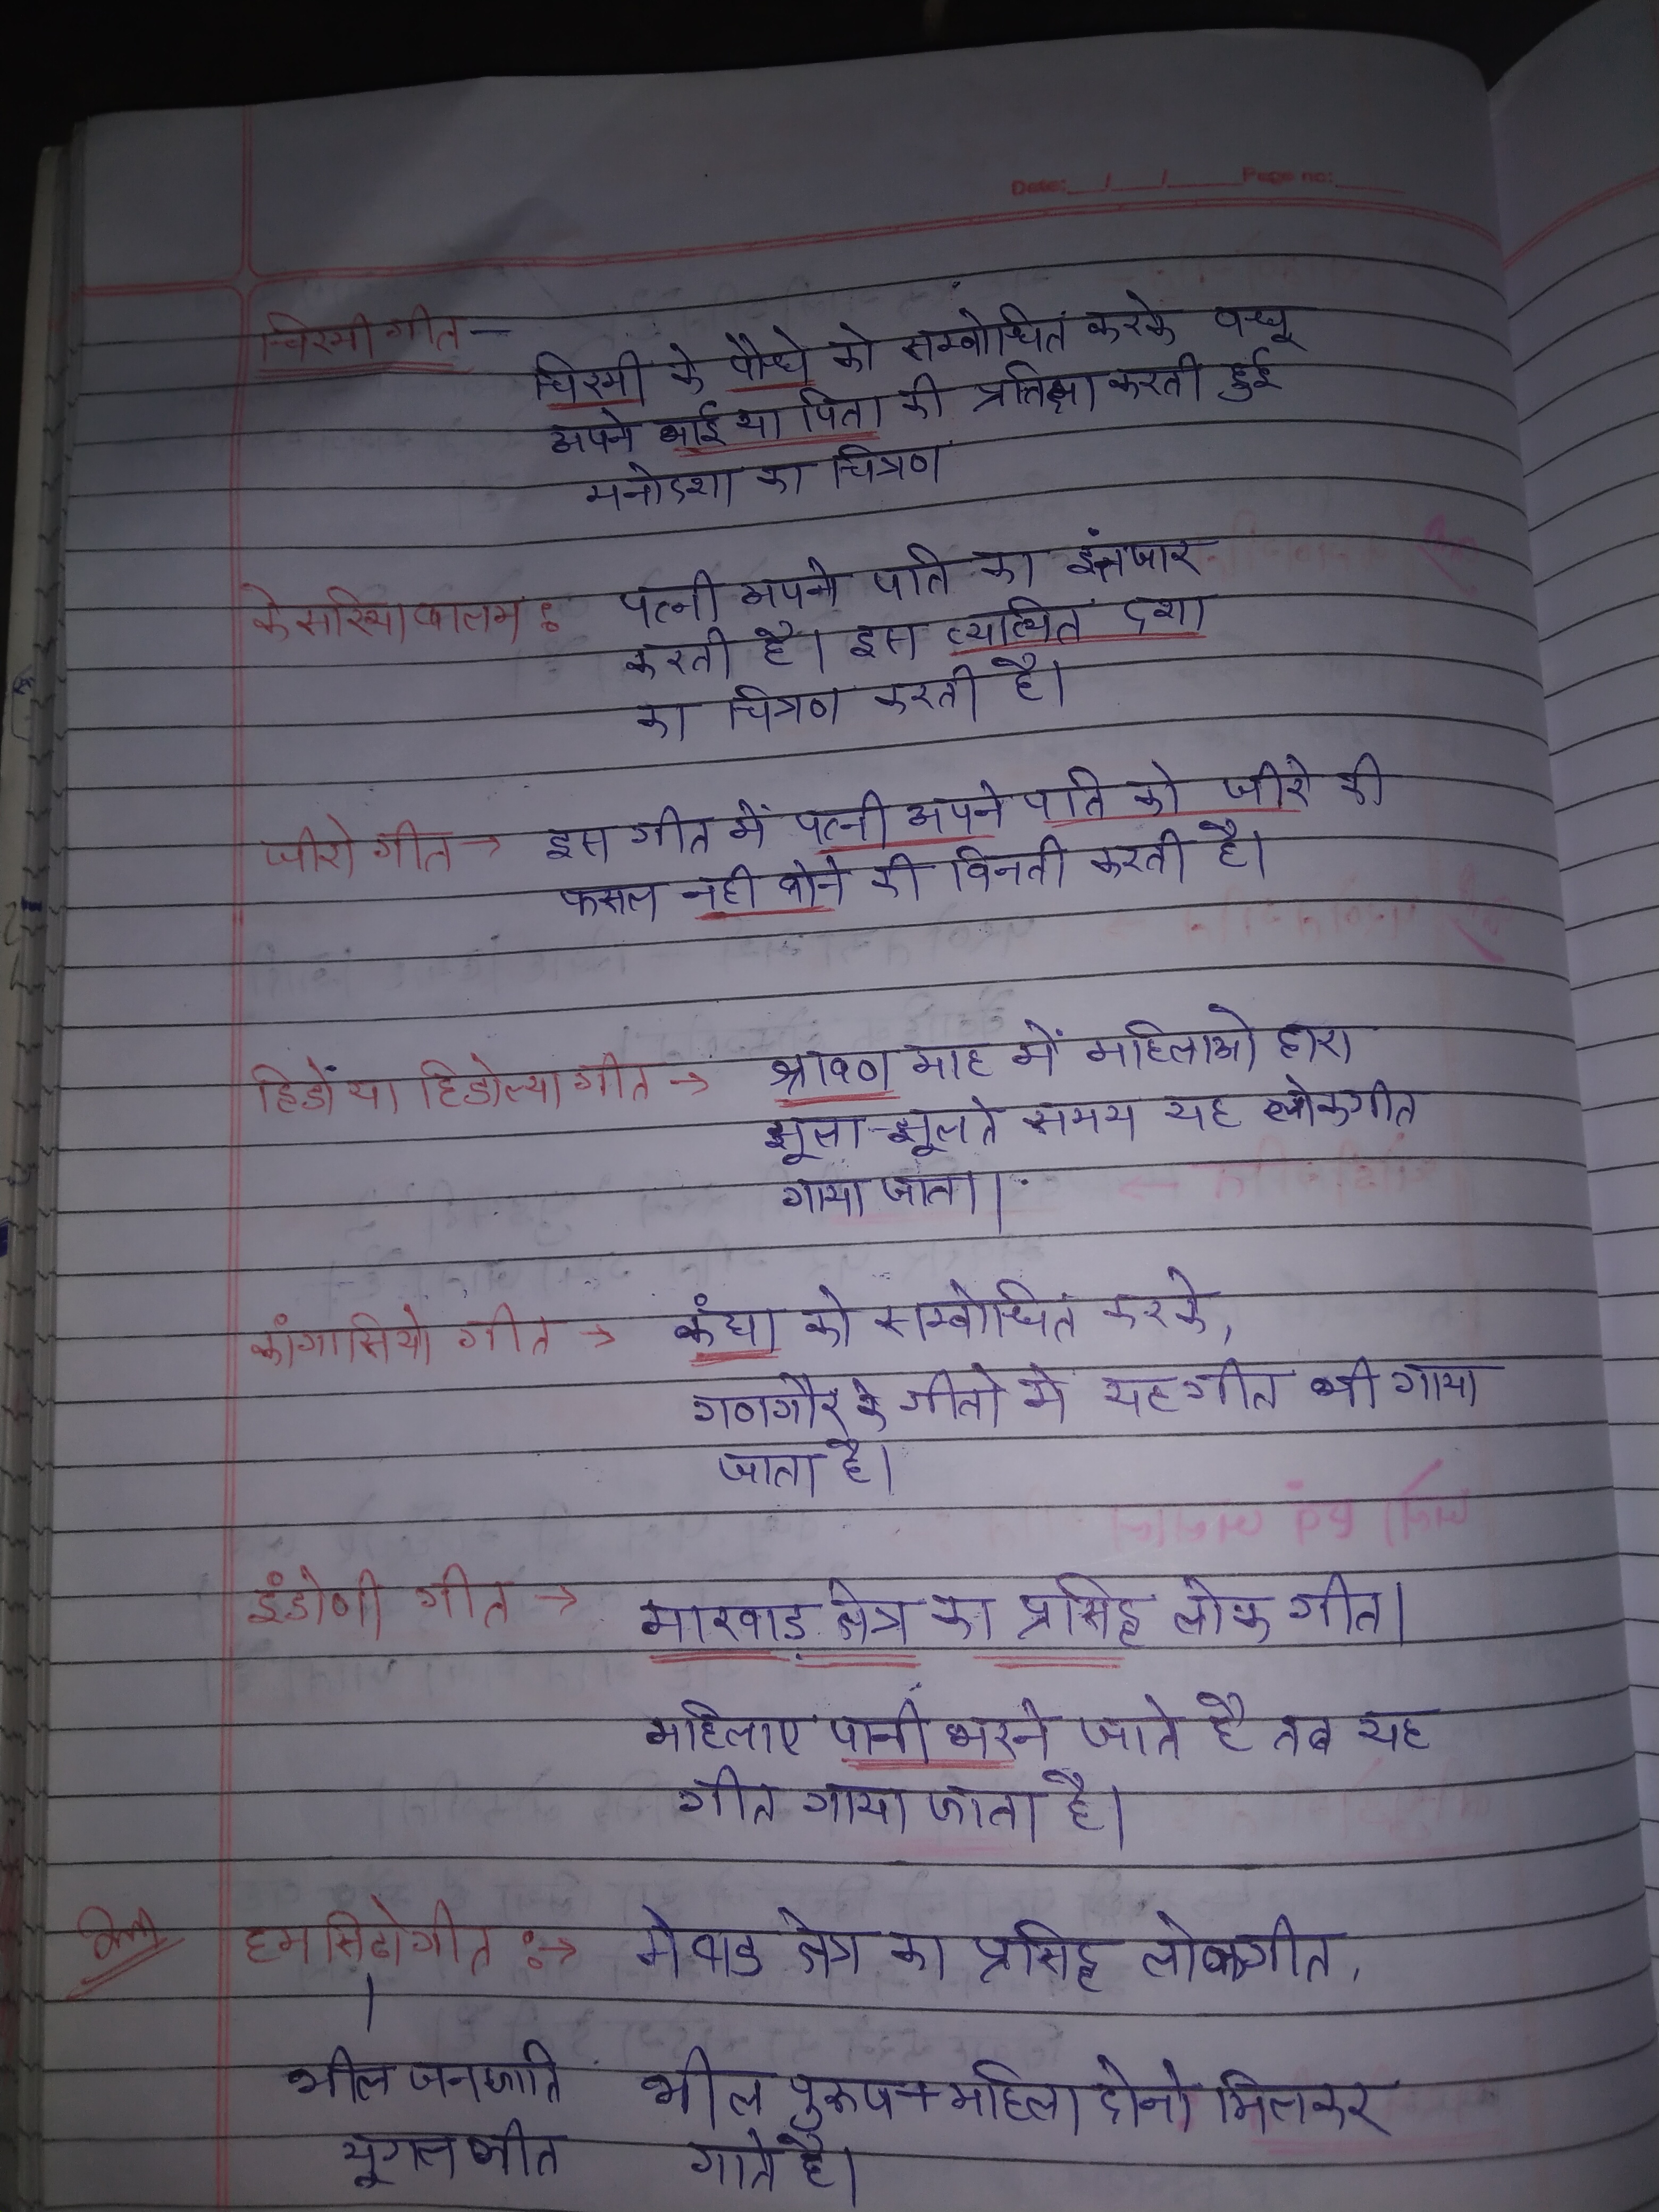 Date: __/__/____ Page no: ____
चिरमी गीत —
चिरमी के पौधे को सम्बोधित करके वधू
अपने भाई या पिता की प्रतिक्षा करती हुई
मनोदशा का चित्रण
केसरिया बालम : पत्नी अपने पति का इंतजार
करती है। इस व्यथित दशा
का चित्रण करती है।
जीरो गीत → इस गीत में पत्नी अपने पति को जीरे की
फसल नही बोने की विनती करती है।
हिडों या हिडोल्या गीत → श्रावण माह में महिलाओ द्वारा
झूला-झूलते समय यह लोकगीत
गाया जाता।
कांगासियो गीत → कंघा को सम्बोधित करके,
गणगौर के गीतो मे यह गीत भी गाया
जाता है।
इंडोणी गीत → मारवाड़ क्षेत्र का प्रसिद्ध लोक गीत।
महिलाए पानी भरने जाते है तब यह
गीत गाया जाता है।
हमसिढो गीत :→ मेवाड क्षेत्र का प्रसिद्ध लोकगीत,
भील जनजाति भील पुरूष+महिला दोनो मिलकर
युगल गीत गाते है।